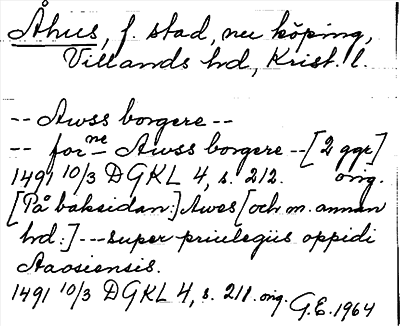 Åhus, f. stad, nu köping,
Villands hd, Krist. l.
-- Awss borgere --
-- forne Awss borgere -- [2 ggr]
1491 10/3 DGKL 4, s. 212. orig.
[På baksidan:] Awes [och m. annan
hd:] --- super priuilegiis oppidi
Aaosiensis.
1491 10/3 DGKL 4, s. 211. orig. G.E. 1964